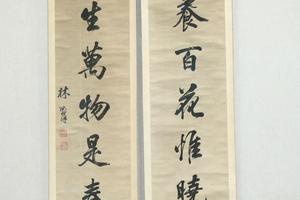 養百花惟曉
生萬物是春
林則徐